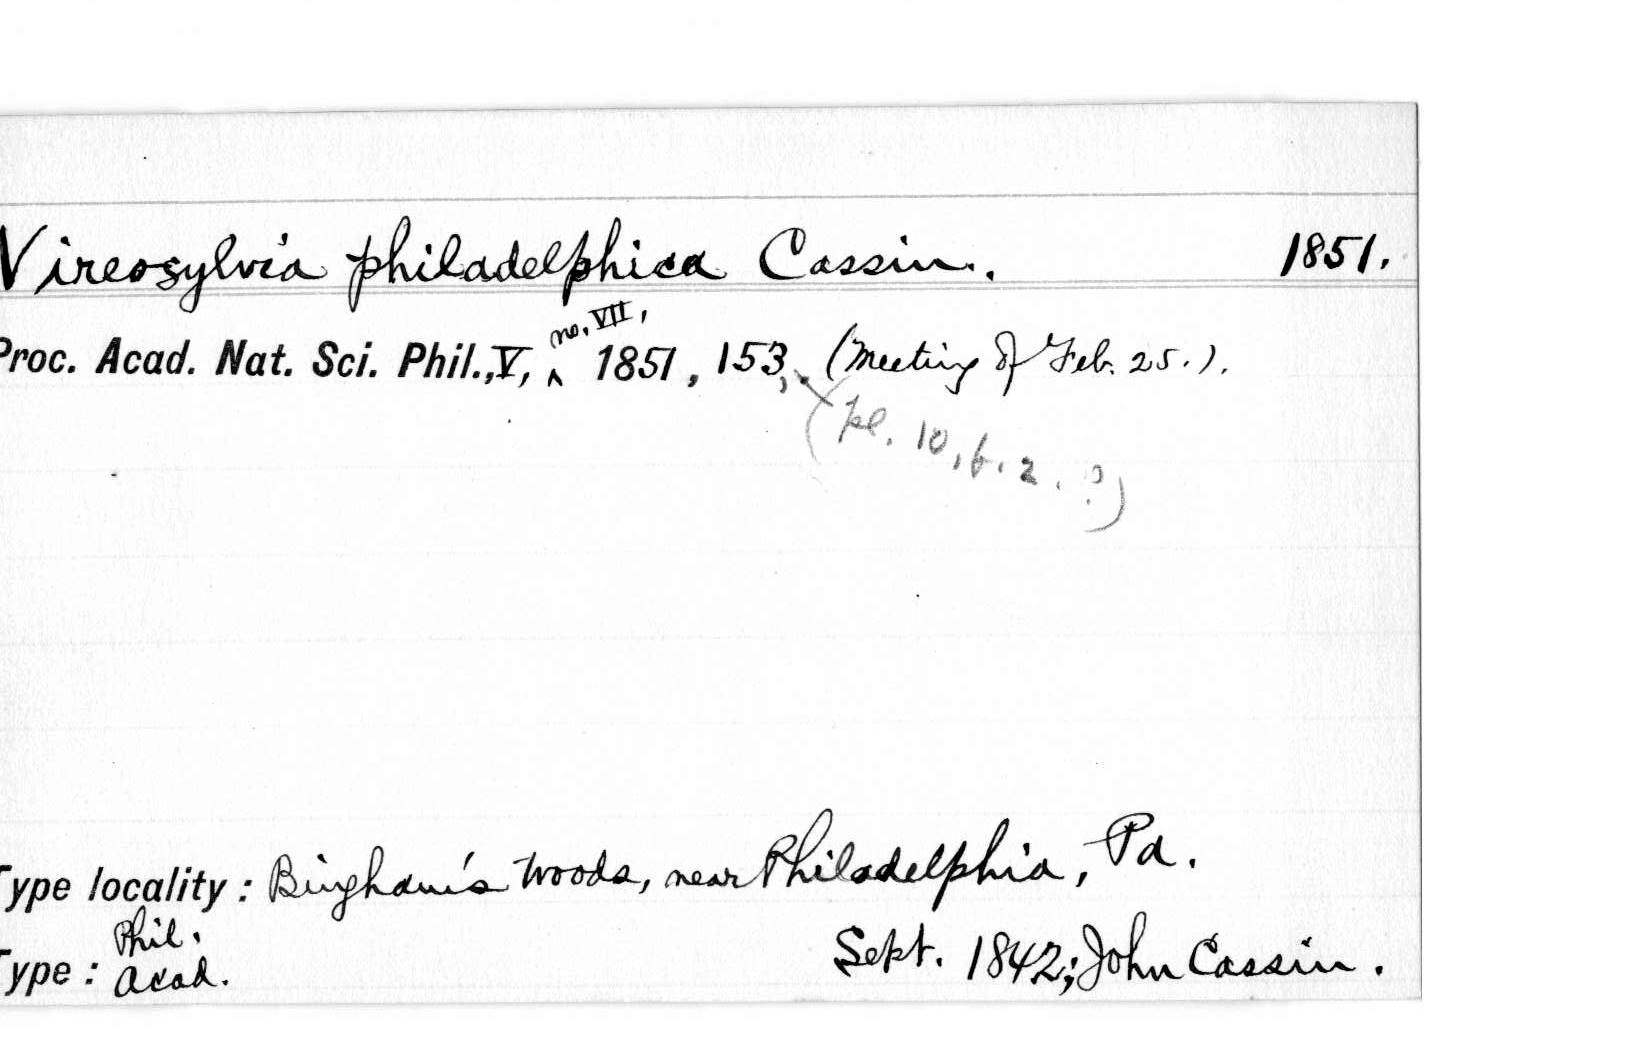 Vireosylvia philadelphica Cassin. 1851.
Proc. Acad. Nat. Sci. Phil., V, no. VII, 1851, 153, (Meeting of Feb. 25.).
(pl. 10, f. 2. ?)
Type locality: Bingham's woods, near Philadelphia, Pa.
Type: Phil. Acad. Sept. 1842; John Cassin.